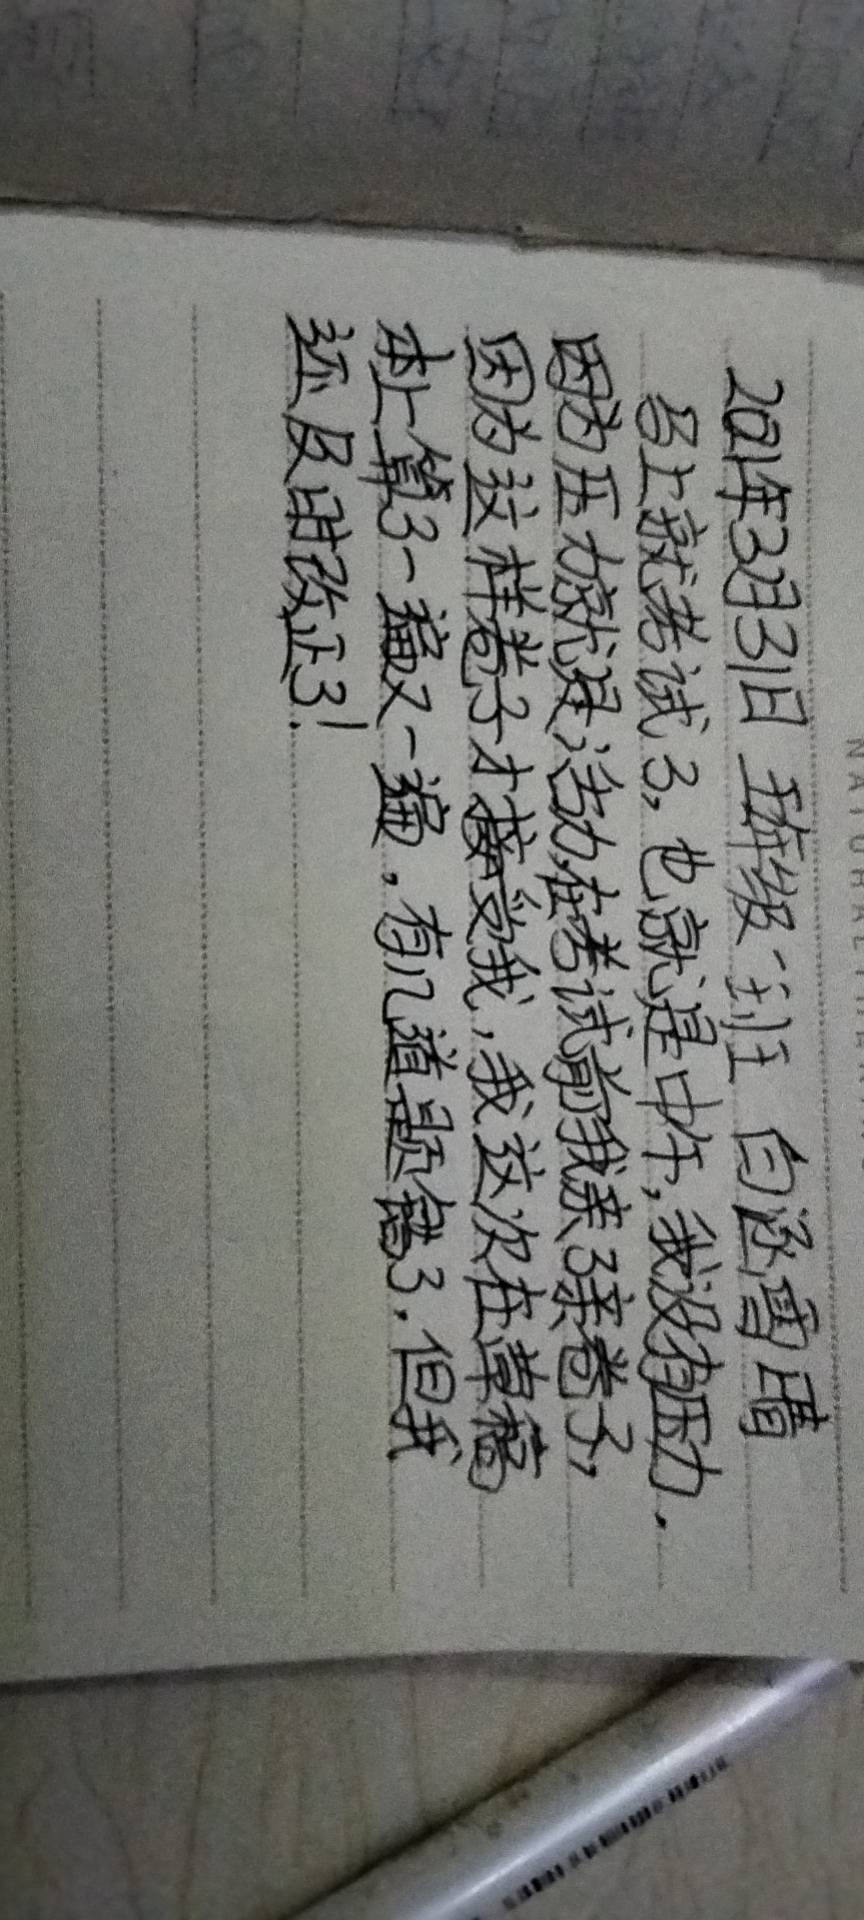 2021年3月31日 五年级一班 白涵雪晴
马上就考试了,也就是中午,我没有压力.
因为压力就是活动,在考试前我亲了亲卷子,
因为这样卷子才接受我,我这次在草稿
本上算了一遍又一遍,有几道题错了,但我
还及时改正了!
NATURAL